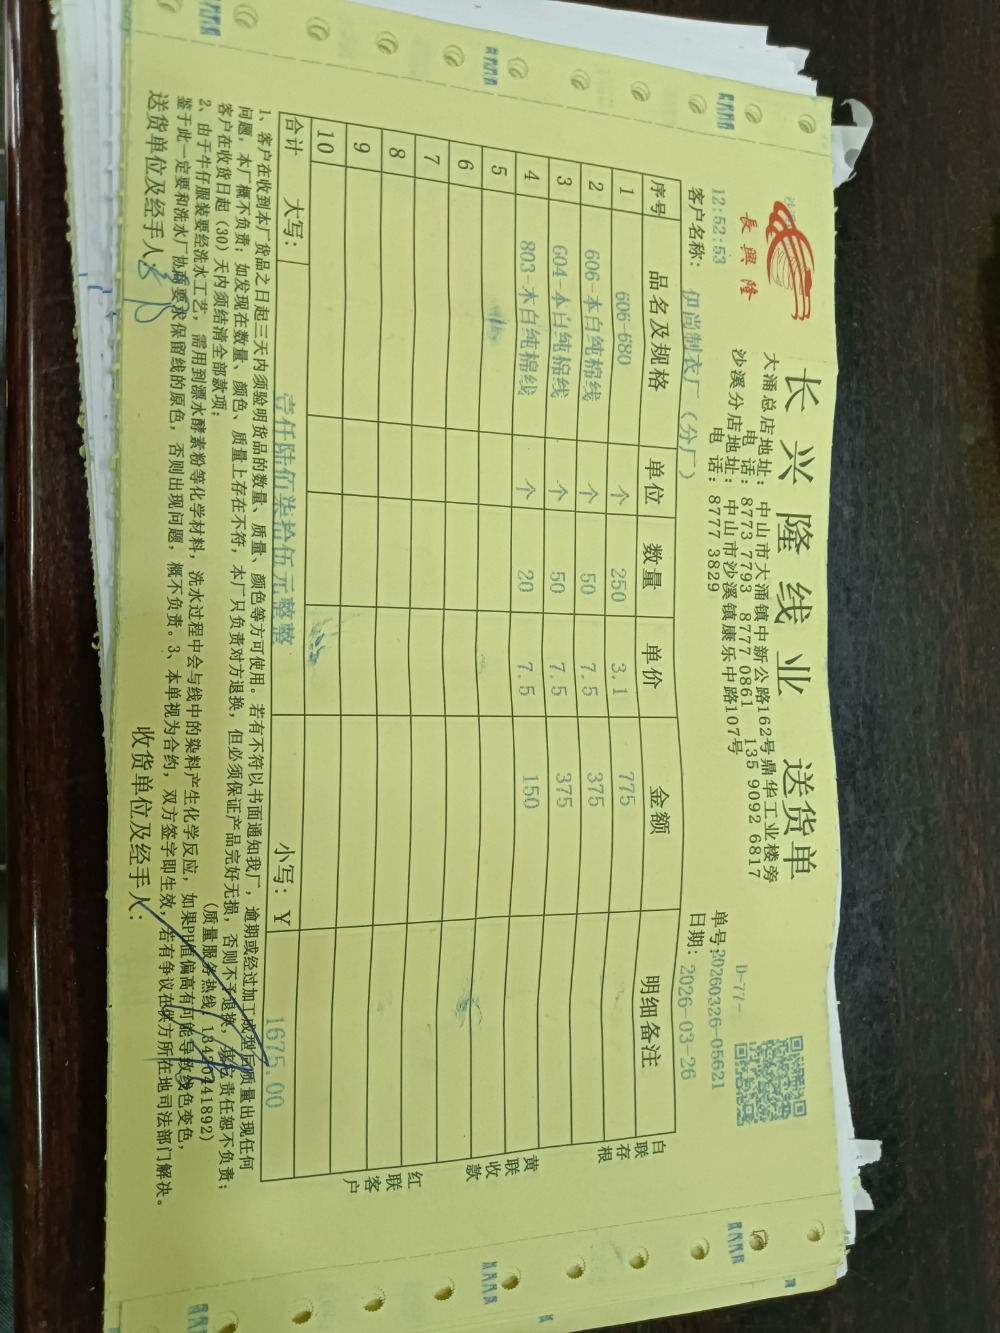 長興隆
长兴隆线业 送货单
大涌总店地址：中山市大涌镇中新公路162号鼎华工业楼旁
电 话：8773 7793 8777 0861 135 9092 6817
沙溪分店地址：中山市沙溪镇康乐中路107号
电 话：8777 3829
D-77-
单号：20260326-05621
12:52:53
客户名称：伊尚制衣厂（分厂）
日期：2026-03-26
序号 品名及规格 单位 数量 单价 金额 明细备注
1 606-680 个 250 3.1 775
2 606-本白纯棉线 个 50 7.5 375
3 604-本白纯棉线 个 50 7.5 375
4 803-本白纯棉线 个 20 7.5 150
5
6
7
8
9
10
合计 大写：壹仟陆佰柒拾伍元整整 小写：¥ 1675.00
白联存根
黄联收款
红联客户
1、客户在收到本厂货品之日起三天内须验明货品的数量、质量、颜色等方可使用。若有不符以书面通知我厂，逾期或经过加工成型后质量出现任何
问题，本厂概不负责；如发现在数量、颜色、质量上存在不符，本厂只负责对方退换，但必须保证产品完好无损，否则不予退换，其它责任恕不负责；
客户在收货日起（30）天内须结清全部款项；
2、由于牛仔服装要经洗水工艺，需用到漂水酵素粉等化学材料，洗水过程中会与线中的染料产生化学反应，如果PH值偏高有可能导致线色变色，
鉴于此一定要和洗水厂协商要求保留线的原色，否则出现问题，概不负责。3、本单视为合约，双方签字即生效，若有争议在供方所在地司法部门解决。
送货单位及经手人：
收货单位及经手人：